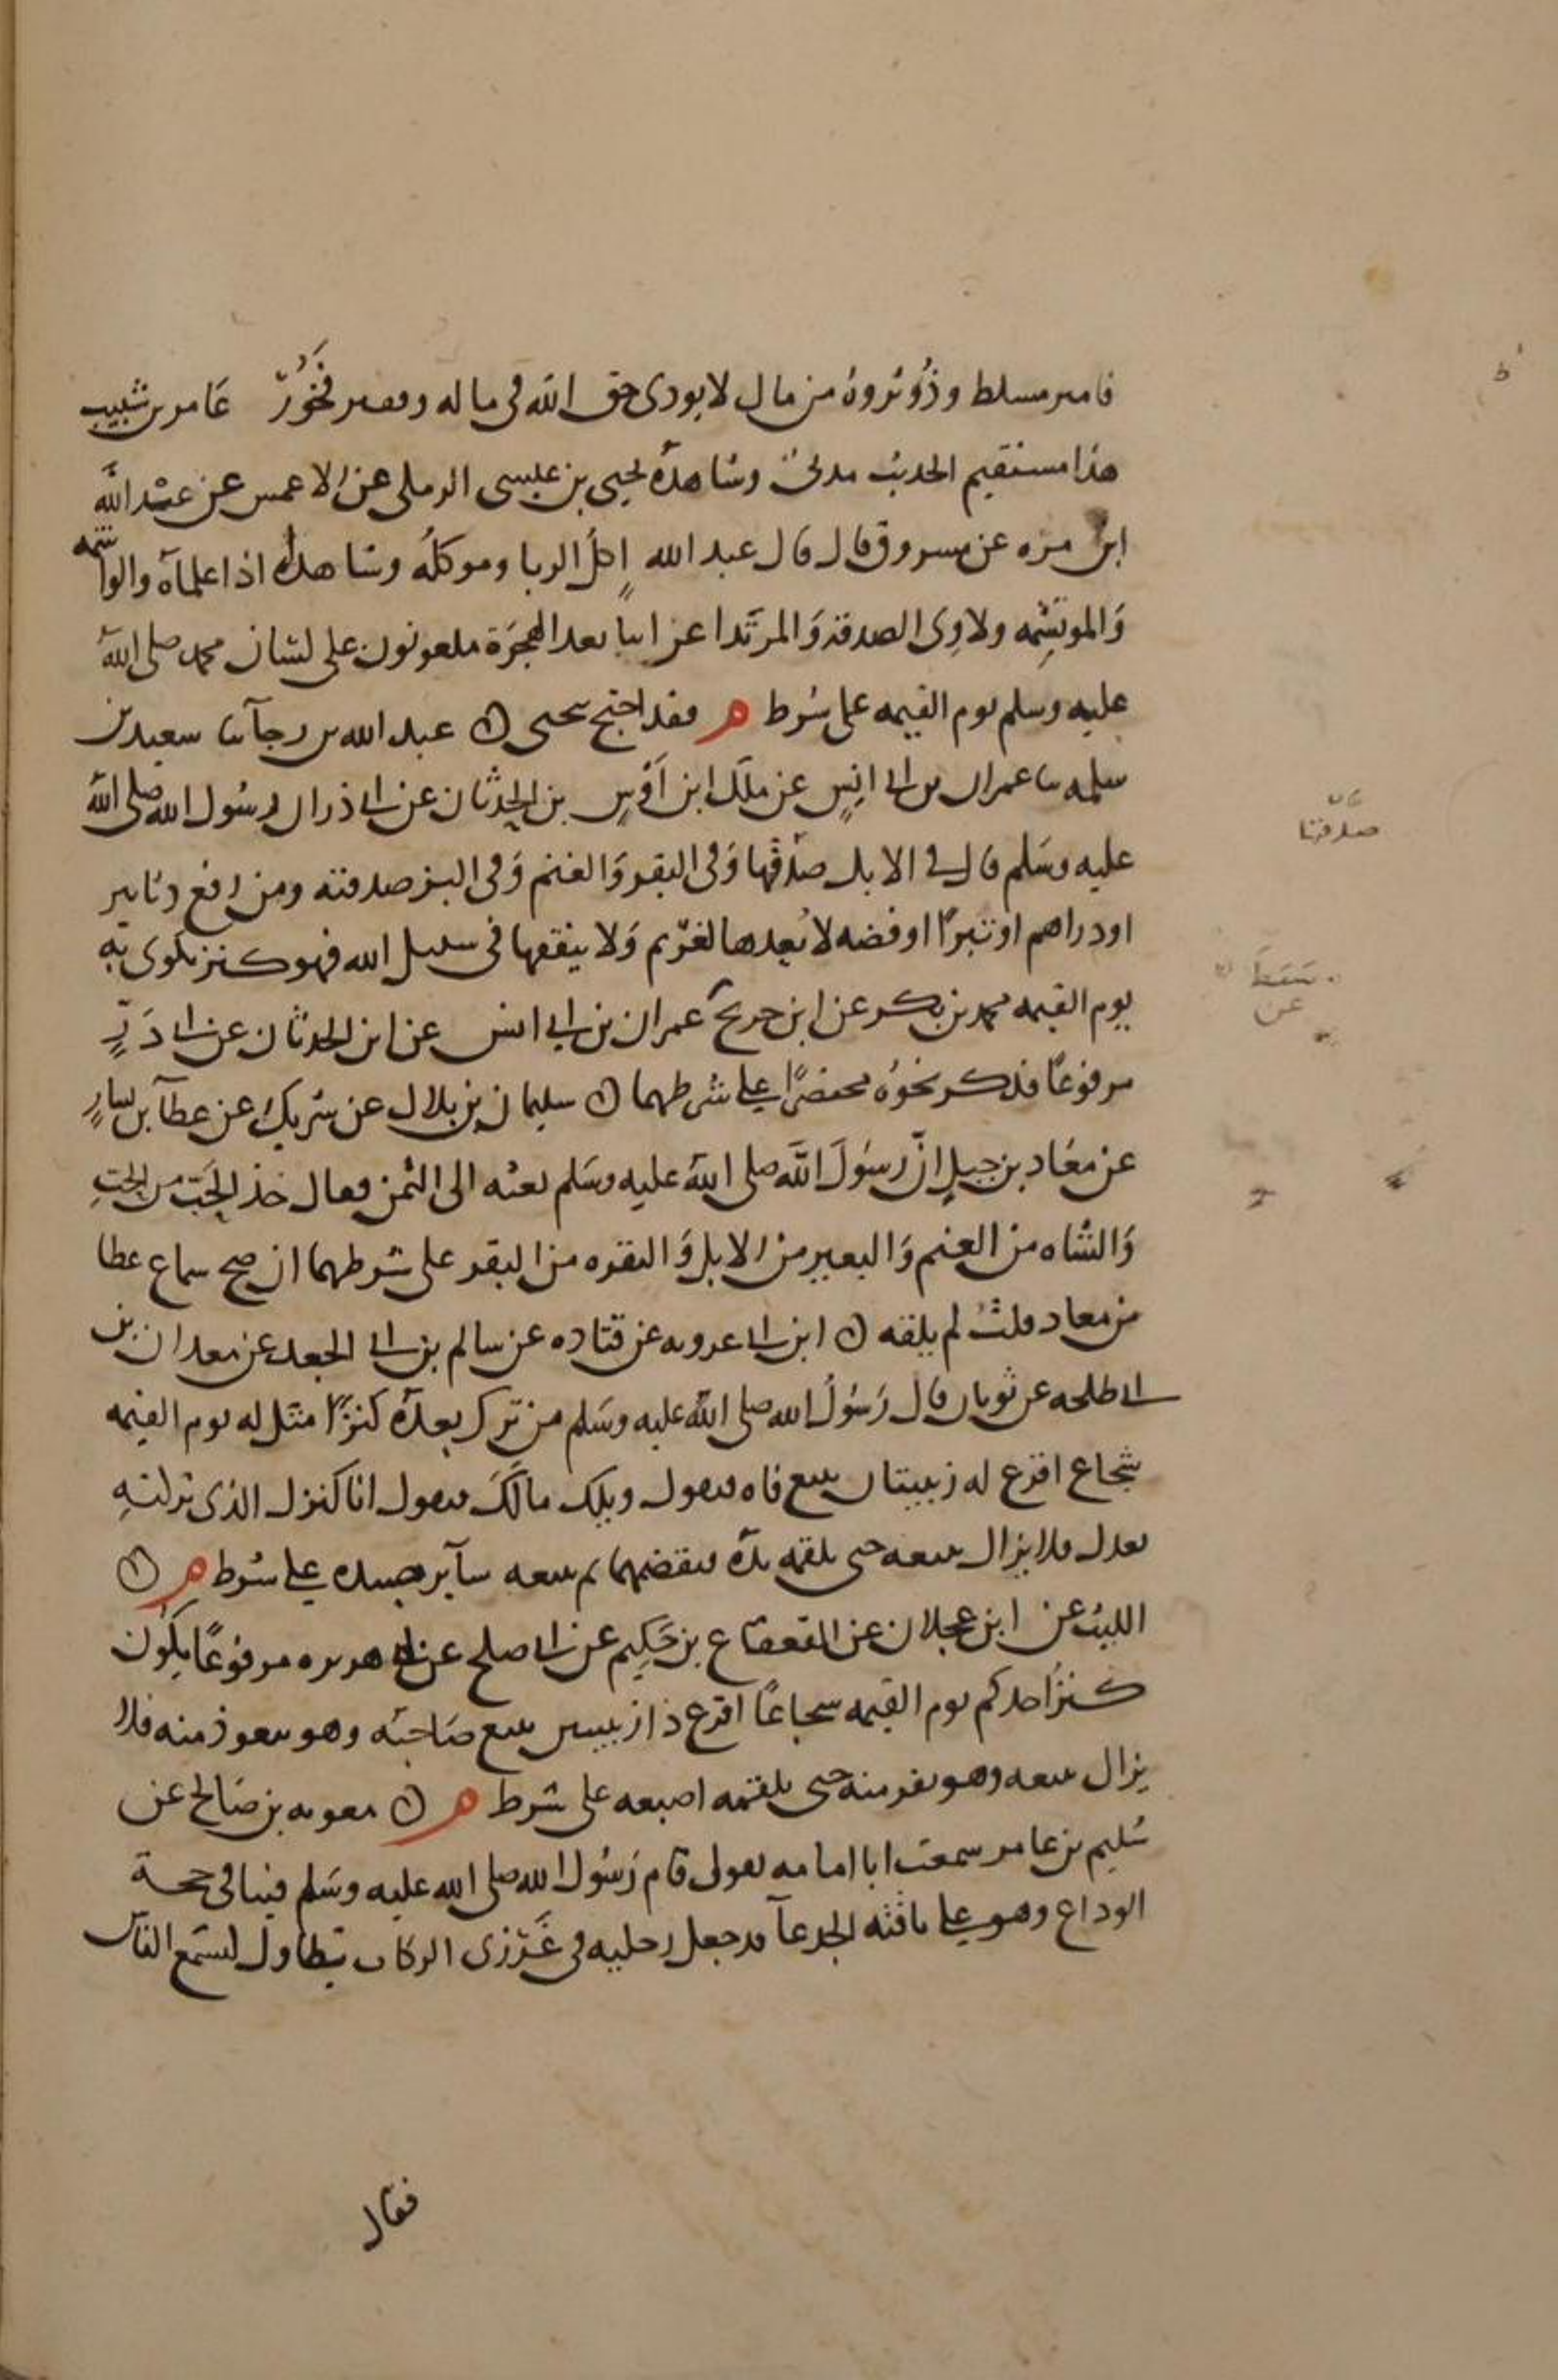 فامير مسلط وذو ثروة من مال لا يودى حق الله فى ماله وفقير فخور عامر بن شبيب
هذا مستقيم الحديث مدنى وشاهده يحيى بن عيسى الرملى عن الاعمش عن عبد الله
ابن مره عن مسروق قال قال عبد الله اكل الربا وموكله وشاهداه اذا علماه والواشمه
والموتشمه ولاوى الصدقة والمرتد اعرابيا بعد الهجرة ملعونون على لسان محمد صلى الله
عليه وسلم يوم القيمه على شرط م فقد احتج بيحيى ن عبد الله بن رجآ سا سعيد بن
سلمه سا عمران بن ابى انيس عن ملك ابن اوس بن الحدثان عن ابى ذر ان رسول الله صلى الله
عليه وسلم قال فى الابل صدقتها وفى البقر والغنم وفى البز صدقته ومن رفع دنانير
او دراهم او تبرا او فضه لا يعدها لغريم ولا ينفقها فى سبيل الله فهو كنز يكوى به
يوم القيمه محمد بن بكر عن ابن جريج عمران بن ابى انس عن ابن الحدثان عن ابى ذر
مرفوعا فذكر نحوه مختصرا على شرطهما ن سليمان بن بلال عن شريك عن عطآ بن يسار
عن معاذ بن جبل ان رسول الله صلى الله عليه وسلم بعثه الى اليمن فقال خذ الحب من الحب
والشاه من الغنم والبعير من الابل والبقره من البقر على شرطهما ان صح سماع عطا
من معاد قلت لم يلقه ن ابن ابى عروبه عن قتاده عن سالم بن ابى الجعد عن معدان بن
ابى طلحه عن ثوبان قال رسول الله صلى الله عليه وسلم من ترك بعده كنزا مثل له يوم القيمه
شجاع اقرع له زبيبتان يتبع فاه فيقول ويلك مالك فيقول انا كنزك الذى تركته
بعدك فلا يزال يتبعه حتى يلقمه يده فيقضمها ثم يتبعه سآير جسده على شرط م ن
الليث عن ابن عجلان عن القعقاع بن حكيم عن ابى صلح عن ابى هريره مرفوعا يكون
كنز احدكم يوم القيمه شجاعا اقرع ذا زبيبتين يتبع صاحبه وهو يتعوذ منه فلا
يزال يتبعه وهو يفر منه حتى يلقمه اصبعه على شرط م ن معويه بن صالح عن
سليم بن عامر سمعت ابا امامه يقول قام رسول الله صلى الله عليه وسلم فينا فى حجة
الوداع وهو على ناقته الجدعآ قد جعل رحليه فى غرزى الركاب يتطاول ليسمع الناس
فقال
صدقتها
سقط
عن